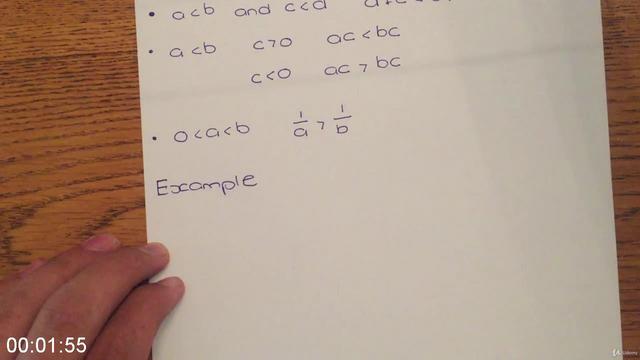 • a<b and c<d
• a<b c>0 ac<bc
c<0 ac>bc
• 0<a<b 1/a > 1/b
Example
00:01:55
Udemy